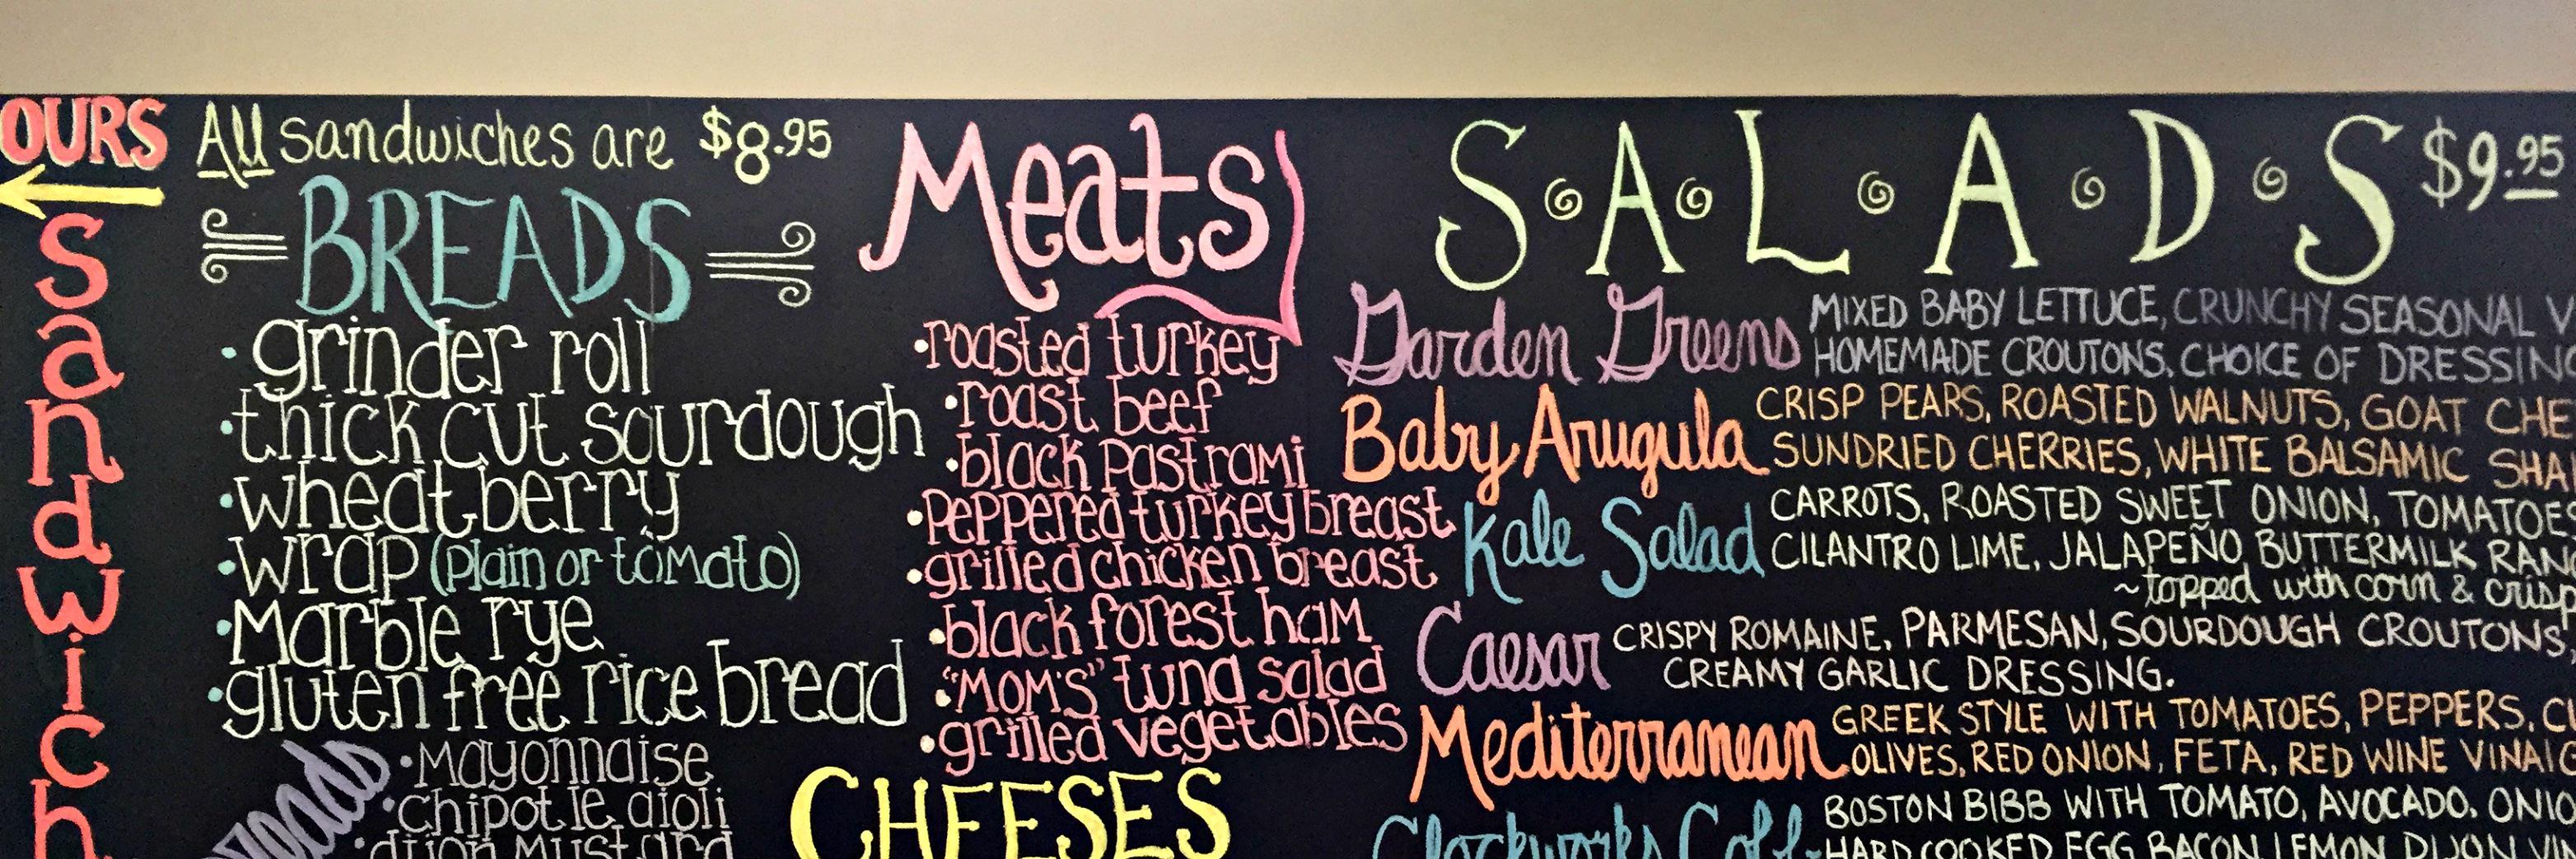 OURS
Sandwich
All sandwiches are $8.95
BREADS
• grinder roll
• thick cut sourdough
• wheatberry
• wrap (plain or tomato)
• Marble rye
• gluten free rice bread
• Mayonnaise
• chipotle aioli
• dijon mustard
Meats
• roasted turkey
• roast beef
• black pastrami
• peppered turkey breast
• grilled chicken breast
• black forest ham
• "MOM'S" tuna salad
• grilled vegetables
CHEESES
S•A•L•A•D•S $9.95
Garden Greens MIXED BABY LETTUCE, CRUNCHY SEASONAL
HOMEMADE CROUTONS, CHOICE OF DRESSING
Baby Arugula CRISP PEARS, ROASTED WALNUTS, GOAT
SUNDRIED CHERRIES, WHITE BALSAMIC
Kale Salad CARROTS, ROASTED SWEET ONION, TOMATOES
CILANTRO LIME, JALAPEÑO BUTTERMILK
~topped with corn & crisp
Caesar CRISPY ROMAINE, PARMESAN, SOURDOUGH CROUTONS,
CREAMY GARLIC DRESSING.
Mediterranean GREEK STYLE WITH TOMATOES, PEPPERS,
OLIVES, RED ONION, FETA, RED WINE
Clockworks BOSTON BIBB WITH TOMATO, AVOCADO,
HARD COOKED EGG BACON LEMON DIJON